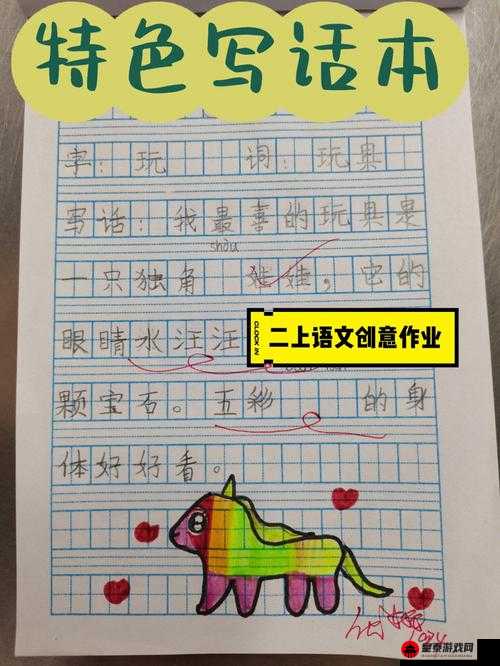 特色写话本
字：玩 词：玩具
写话：我最喜的玩具是
shòu
一只独角 娃娃，它的
眼睛水汪汪
二上语文创意作业
CLOCK IN
颗宝石。五彩 的身
体好好看。
皇泰游戏网